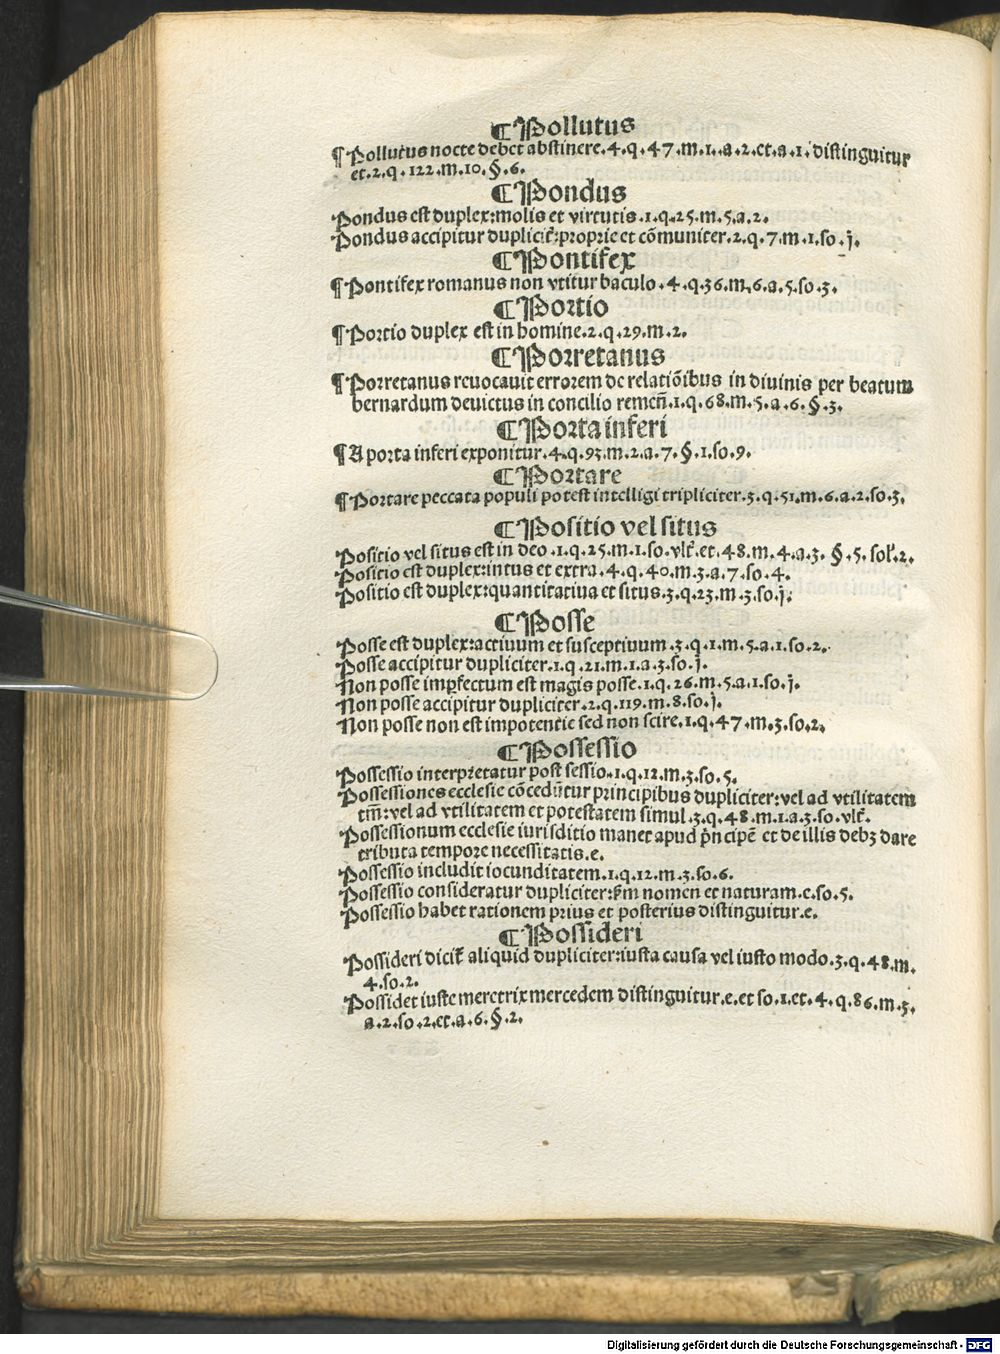 ¶Pollutus
¶Pollutus nocte debet abstinere.4.q.47.m.1.a.2.et.a.1.distinguitur
et.2.q.122.m.10.§.6.
¶Pondus
Pondus est duplex:molis et virtutis.1.q.25.m.5.a.2.
Pondus accipitur duplicit̃:proprie et cōmuniter.2.q.7.m.1.so.j.
¶Pontifex
¶Pontifex romanus non vtitur baculo.4.q.36.m.6.a.5.so.3.
¶Portio
¶Portio duplex est in homine.2.q.29.m.2.
¶Porretanus
¶Porretanus reuocauit errorem de relatiōibus in diuinis per beatum
bernardum deuictus in concilio remeñ.1.q.68.m.5.a.6.§.3.
¶Porta inferi
¶A porta inferi exponitur.4.q.93.m.2.a.7.§.1.so.9.
¶Portare
¶Portare peccata populi potest intelligi tripliciter.3.q.51.m.6.a.2.so.3.
¶Positio vel situs
Positio vel situs est in deo.1.q.25.m.1.so.vlt̃.et.48.m.4.a.3.§.5.sol̃.2.
Positio est duplex:intus et extra.4.q.40.m.3.a.7.so.4.
Positio est duplex:quantitatiua et situs.3.q.23.m.3.so.j.
¶Posse
Posse est duplex:actiuum et susceptiuum.3.q.1.m.5.a.1.so.2.
Posse accipitur dupliciter.1.q.21.m.1.a.3.so.j.
Non posse imꝑfectum est magis posse.1.q.26.m.5.a.1.so.j.
Non posse accipitur dupliciter.2.q.119.m.8.so.j.
Non posse non est impotentie sed non scire.1.q.47.m.3.so.2.
¶Possessio
Possessio interpretatur post sessio.1.q.12.m.3.so.5.
Possessiones ecclesie cōcedũtur principibus dupliciter:vel ad vtilitatem
tm̃:vel ad vtilitatem et potestatem simul.3.q.48.m.1.a.3.so.vlt̃.
Possessionum ecclesie iurisditio manet apud p̃ncipē et de illis debꝫ dare
tributa tempore necessitatis.e.
Possessio includit iocunditatem.1.q.12.m.3.so.6.
Possessio consideratur dupliciter:ẜm nomen et naturam.e.so.5.
Possessio habet rationem prius et posterius distinguitur.e.
¶Possideri
Possideri dicit̃ aliquid dupliciter:iusta causa vel iusto modo.3.q.48.m.
4.so.2.
Possidet iuste meretrix mercedem distinguitur.e.et so.1.et.4.q.86.m.3.
a.2.so.2.et.a.6.§.2.
Digitalisierung gefördert durch die Deutsche Forschungsgemeinschaft - DFG